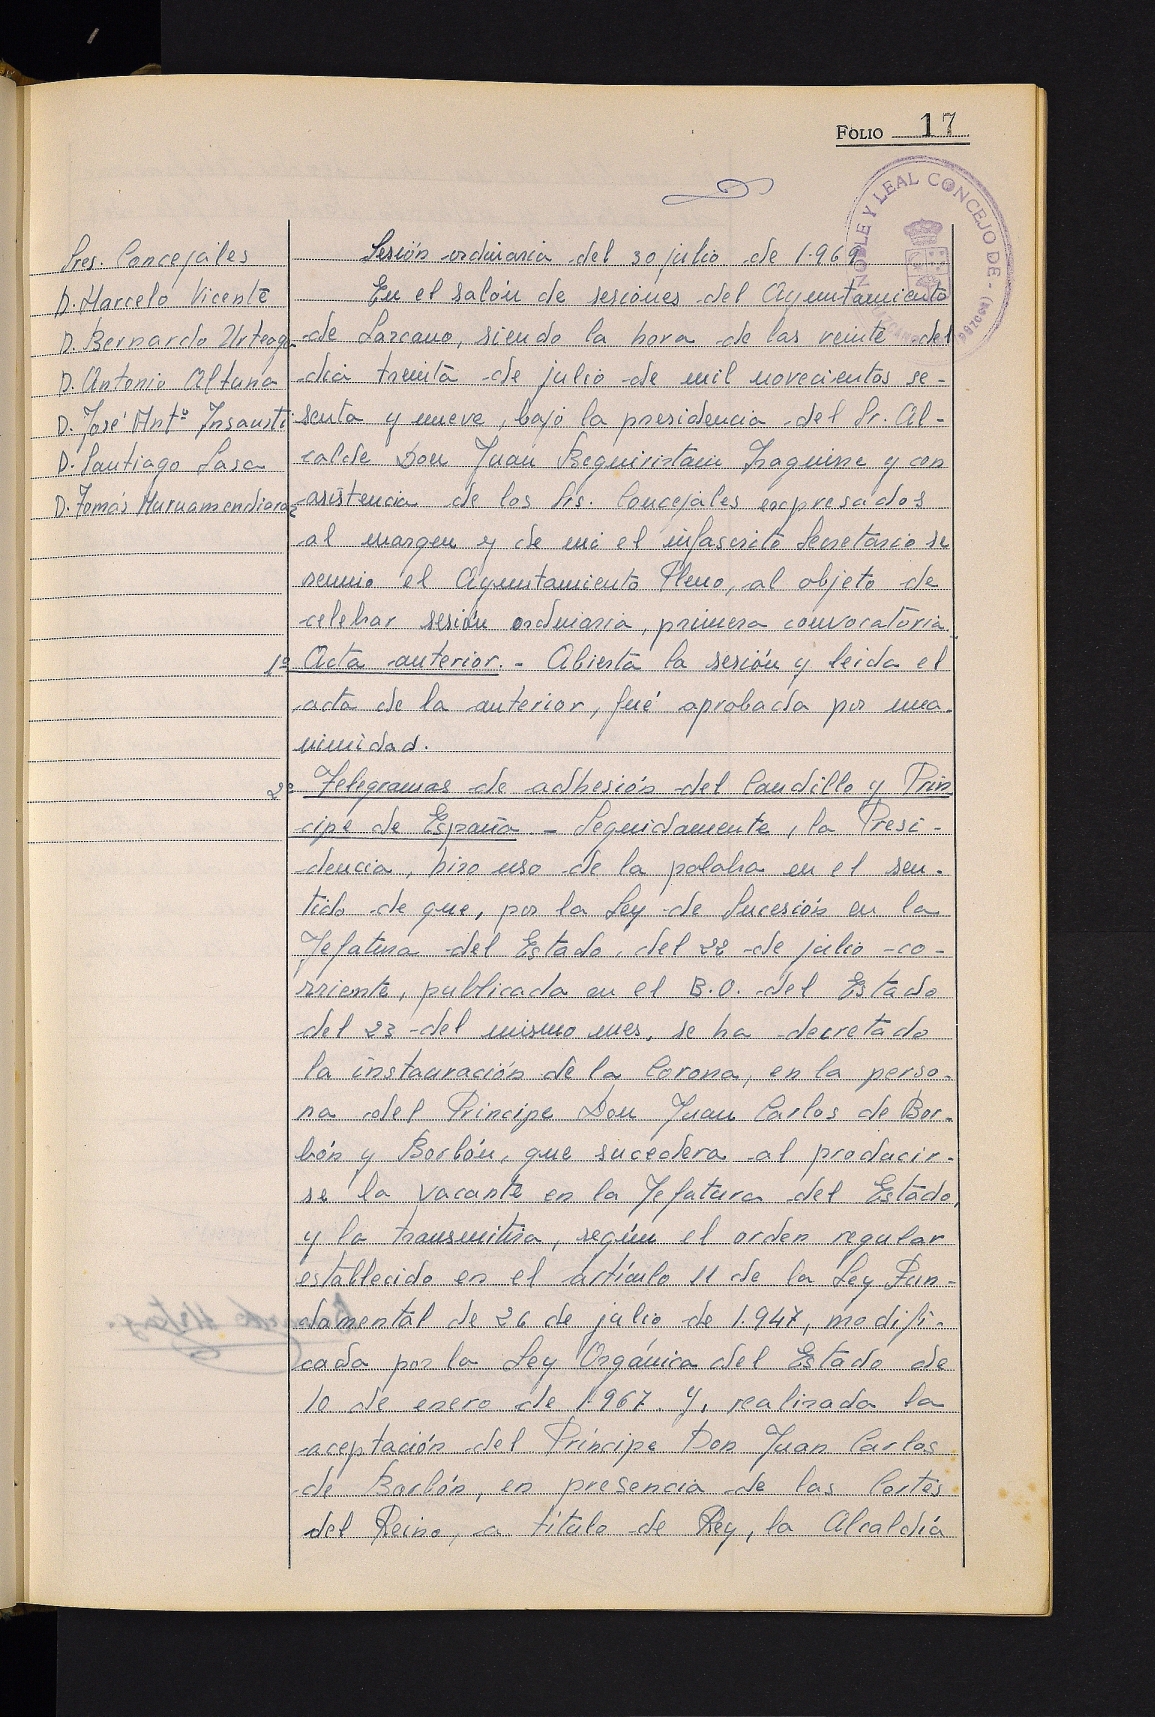 FOLIO 17
NOBLE Y LEAL CONCEJO DE
Sres. Concejales
D. Marcelo Vicente
D. Bernardo Urteaga
D. Antonio Altuna
D. José Antº Insausti
D. Santiago Sasa
D. Tomás Muruamendiaraz
Sesión ordinaria del 30 julio de 1.969
En el salón de sesiones del Ayuntamiento
de Lazcano, siendo la hora de las veinte del
dia treinta de julio de mil novecientos se-
senta y nueve, bajo la presidencia del Sr. Al-
calde Don Juan Beguiristain Izaguirre y con
asistencia de los Srs. Concejales expresados
al margen y de mi el infascrito Secretario se
reunio el Ayuntamiento Pleno, al objeto de
celebrar sesión ordinaria, primera convocatoria.
1º Acta anterior. - Abierta la sesión y leida el
acta de la anterior, fué aprobada por una-
nimidad.
2º Telegramas de adhesión del Caudillo y Prin
cipe de España - Seguidamente, la Presi-
dencia, hizo uso de la palabra en el sen-
tido de que, por la Ley de Sucesión en la
Jefatura del Estado, del 22 de julio co-
rriente, publicada en el B.O. del Estado
del 23 del mismo mes, se ha decretado
la instauración de la Corona, en la perso-
na del Principe Don Juan Carlos de Bor-
bón y Borbón, que sucedera al producir-
se la vacante en la Jefatura del Estado,
y la transmitira, según el orden regular
establecido en el artículo 11 de la Ley Fun-
damental de 26 de julio de 1.947, modifi-
cada por la Ley Orgánica del Estado de
10 de enero de 1.967. Y, realizada la
aceptación del Príncipe Don Juan Carlos
de Borbón, en presencia de las Cortes
del Reino, a título de Rey, la Alcaldía